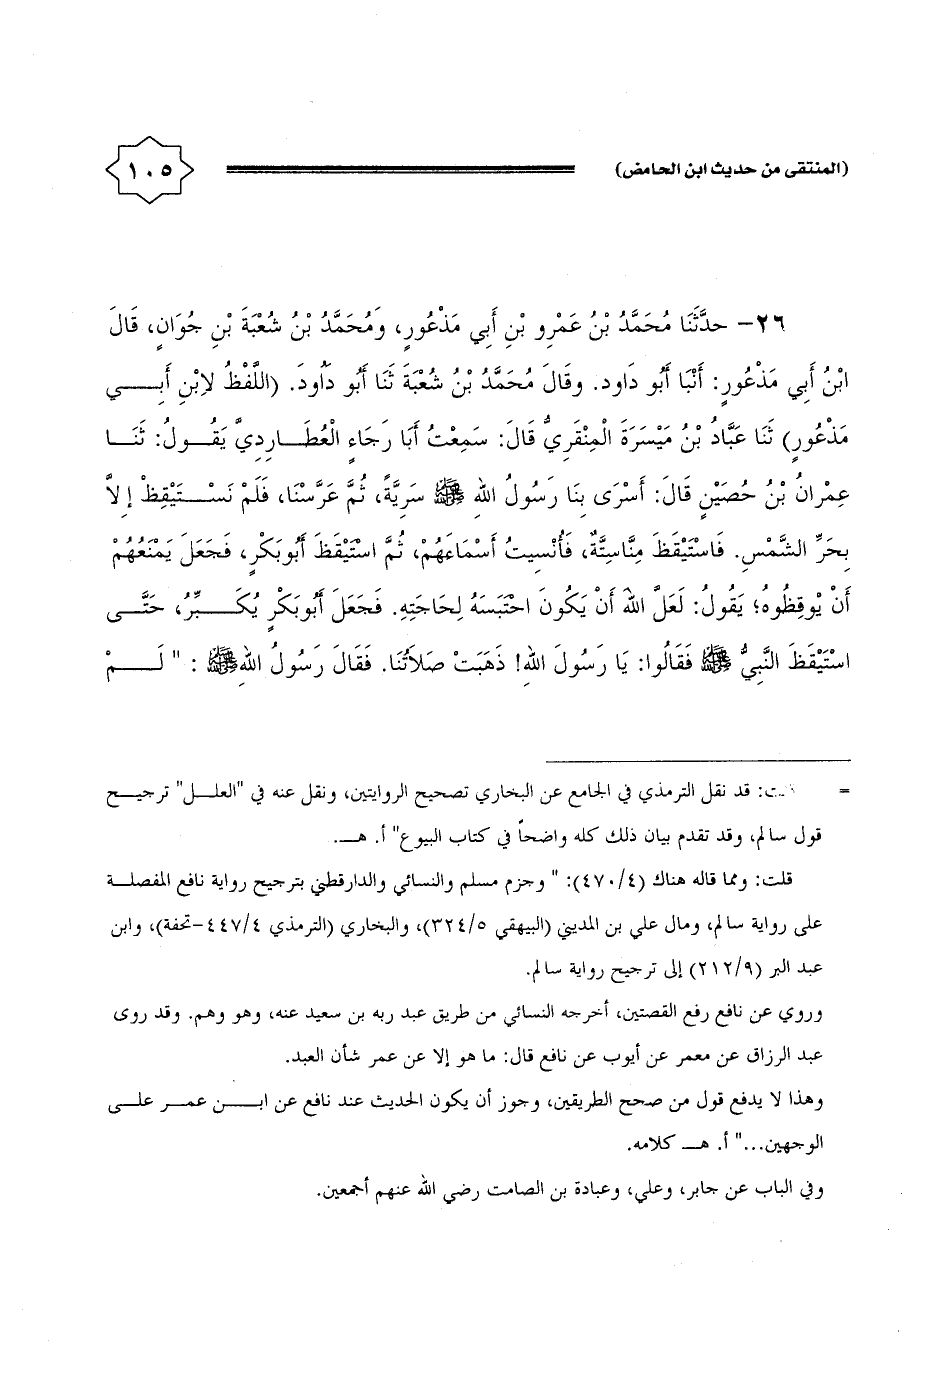 (المنتقى من حديث ابن الحامض)
١٠٥
٢٦- حدَّثَنَا مُحَمَّدُ بْنُ عَمْرِو بْنِ أَبِي مَذْعُورٍ، وَمُحَمَّدُ بْنُ شُعْبَةَ بْنِ جُوَانٍ، قَالَ
ابْنُ أَبِي مَذْعُورٍ: أَنْبَا أَبُو دَاود. وقَالَ مُحَمَّدُ بْنُ شُعْبَةَ ثَنَا أَبُو دَاوُدَ. (اللَّفْظُ لاِبْنِ أَبِي
مَذْعُورٍ) ثَنَا عَبَّادُ بْنُ مَيْسَرَةَ الْمِنْقَرِيُّ قَالَ: سَمِعْتُ أَبَا رَجَاءٍ الْعُطَارِدِيَّ يَقُولُ: ثَنَا
عِمْرانُ بْنُ حُصَيْنٍ قَالَ: أَسْرَى بِنَا رَسُولُ اللهِ ﷺ سَرِيَّةً، ثُمَّ عَرَّسْنَا، فَلَمْ نَسْتَيْقِظْ إلاَّ
بِحَرِّ الشَّمْسِ. فَاسْتَيْقَظَ مِنَّاسِتَّةٌ، فَأُنْسِيتُ أَسْمَاءَهُمْ، ثُمَّ اسْتَيْقَظَ أَبُوبَكْرٍ، فَجَعَلَ يَمْنَعُهُمْ
أَنْ يُوقِظُوهُ؛ يَقُولُ: لَعَلَّ اللهَ أَنْ يَكُونَ احْتَبَسَهُ لِحَاجَتِهِ. فَجَعَلَ أَبُوبَكْرٍ يُكَبِّرُ، حَتَّى
اسْتَيْقَظَ النَّبِيُّ ﷺ فَقَالُوا: يَا رَسُولَ اللهِ! ذَهَبَتْ صَلاَتُنَا. فَقَالَ رَسُولُ اللهِﷺ : " لَمْ
= قلت: قد نقل الترمذي في الجامع عن البخاري تصحيح الروايتين، ونقل عنه في "العلل" ترجيح
قول سالم، وقد تقدم بيان ذلك كله واضحاً في كتاب البيوع" أ. هـ.
قلت: ومما قاله هناك (٤٧٠/٤): " وجزم مسلم والنسائي والدارقطني بترجيح رواية نافع المفصلة
على رواية سالم، ومال علي بن المديني (البيهقي ٣٢٤/٥)، والبخاري (الترمذي ٤٤٧/٤-تحفة)، وابن
عبد البر (٢١٢/٩) إلى ترجيح رواية سالم.
وروي عن نافع رفع القصتين، أخرجه النسائي من طريق عبد ربه بن سعيد عنه، وهو وهم. وقد روى
عبد الرزاق عن معمر عن أيوب عن نافع قال: ما هو إلا عن عمر شأن العبد.
وهذا لا يدفع قول من صحح الطريقين، وجوز أن يكون الحديث عند نافع عن ابن عمر على
الوجهين..." أ. هـ كلامه.
وفي الباب عن جابر، وعلي، وعبادة بن الصامت رضي الله عنهم أجمعين.